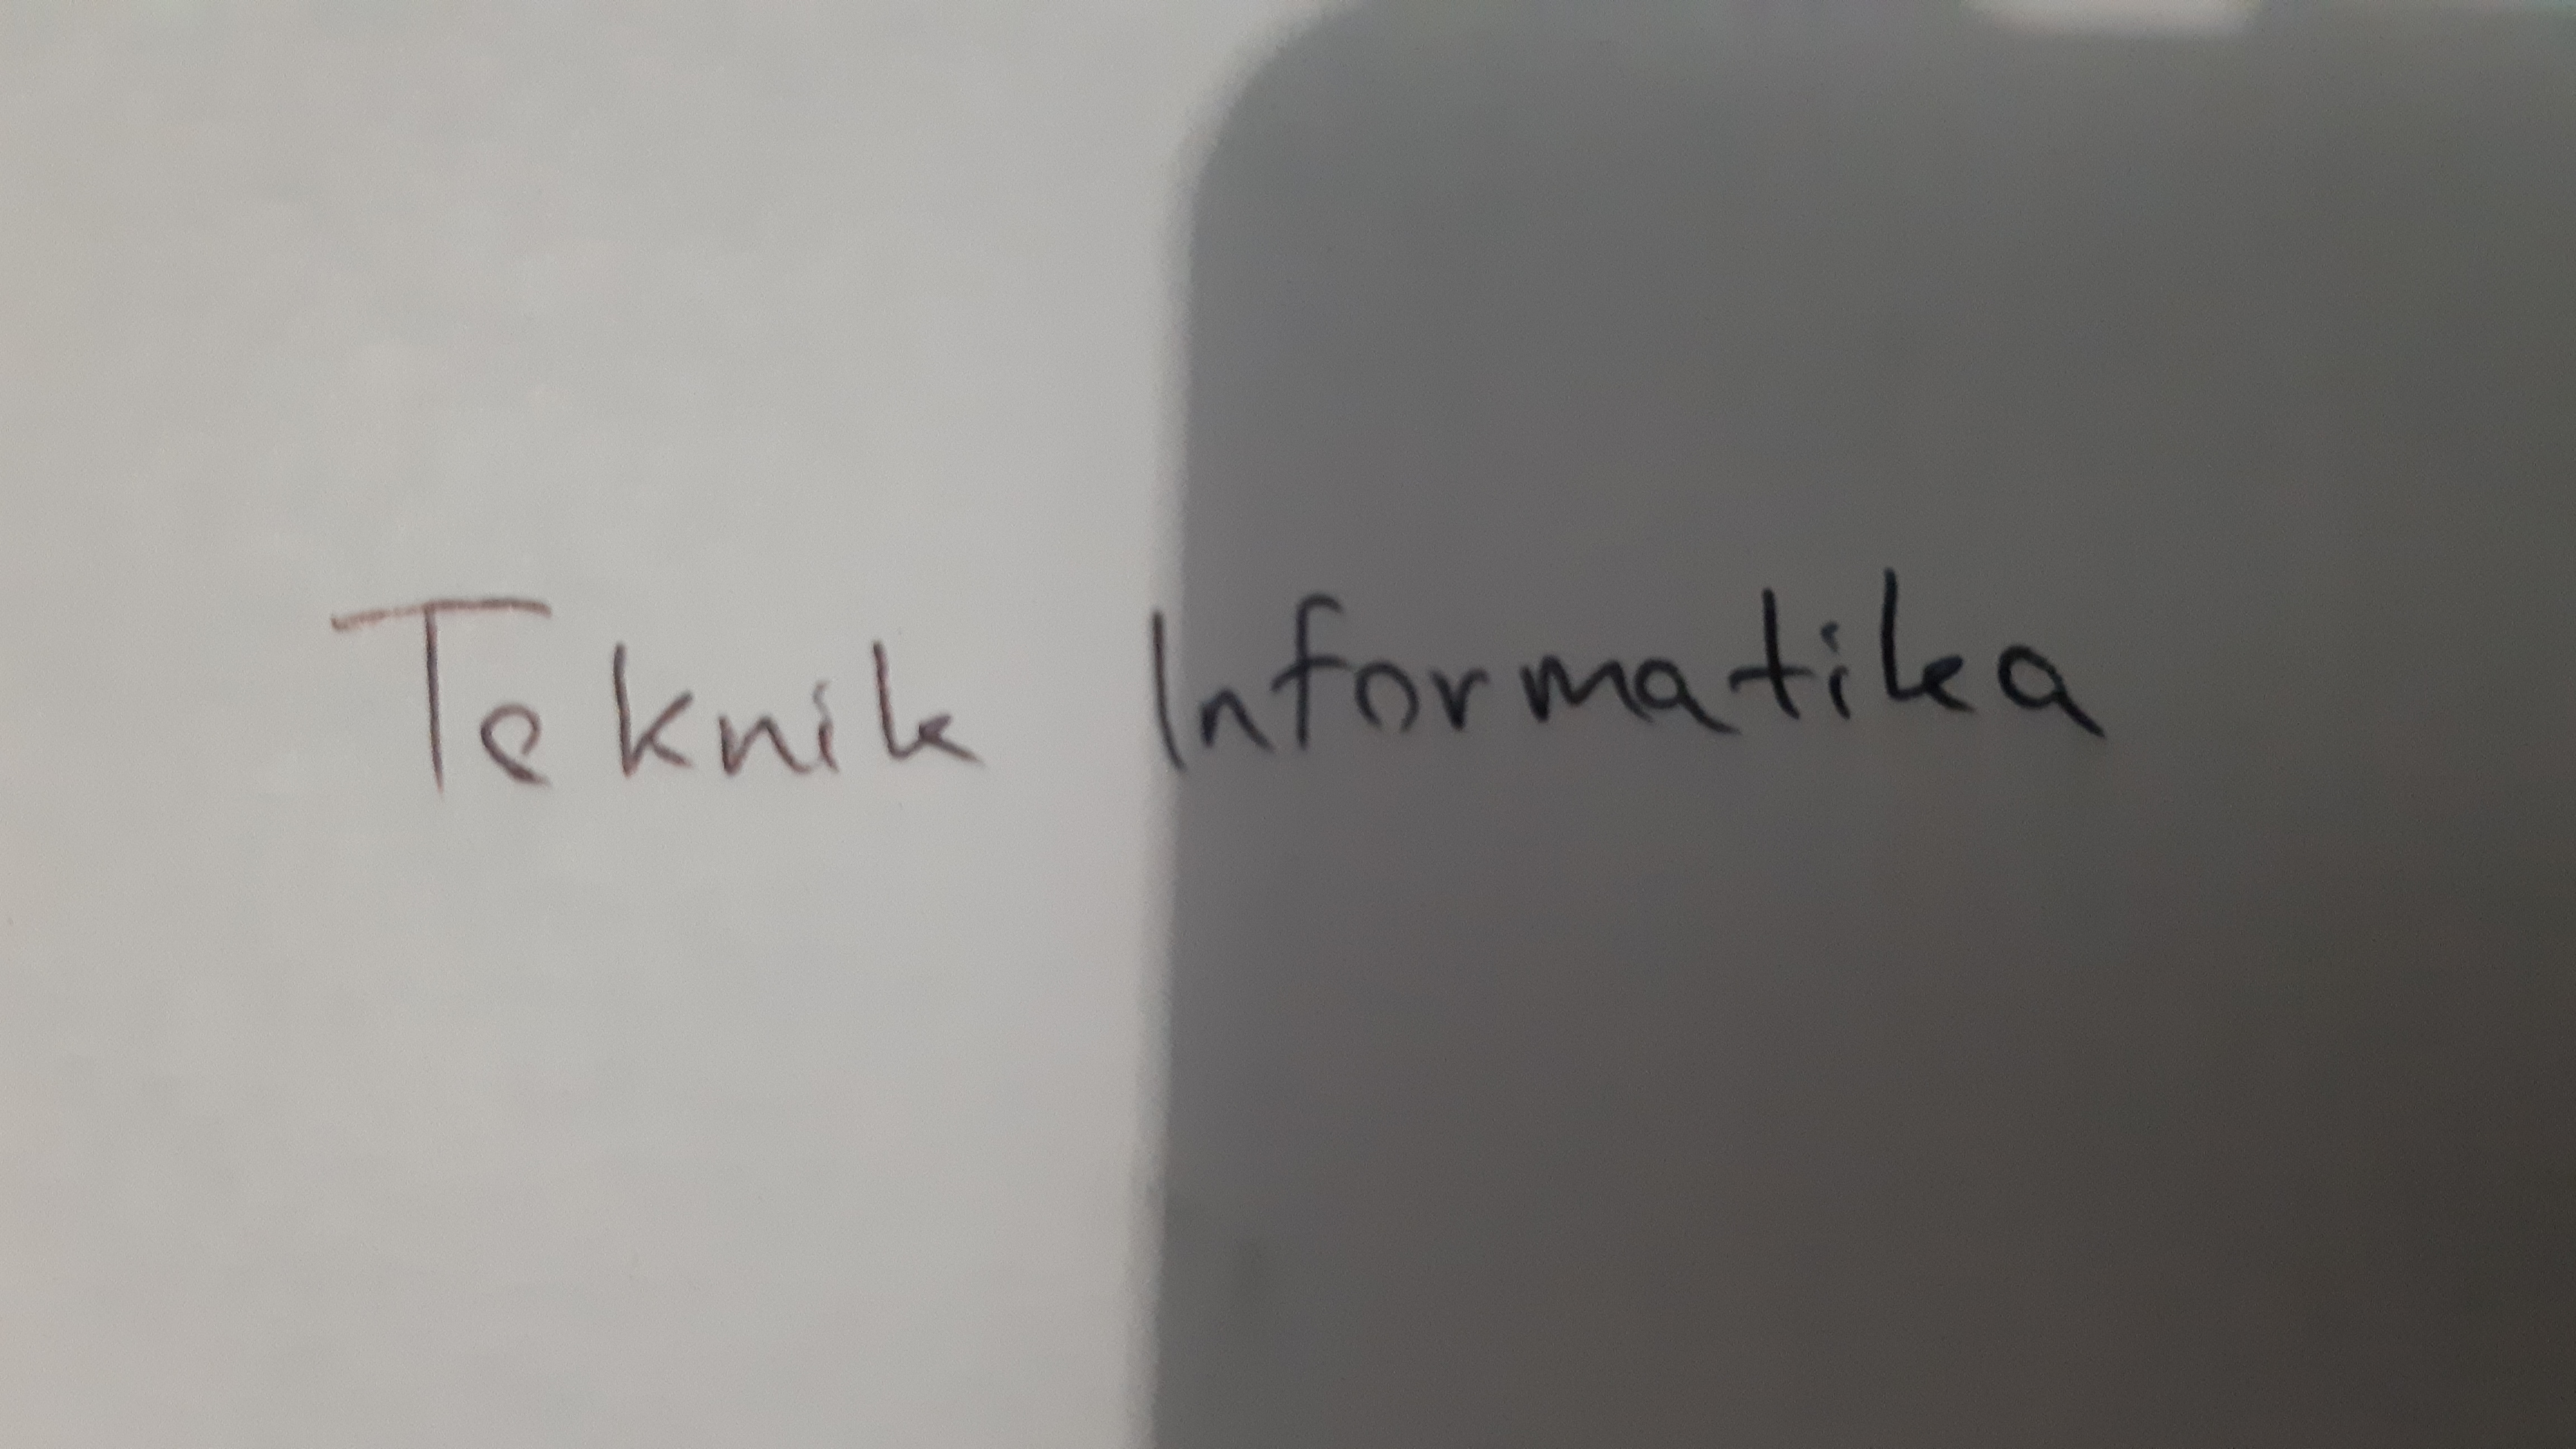 Teknik Informatika